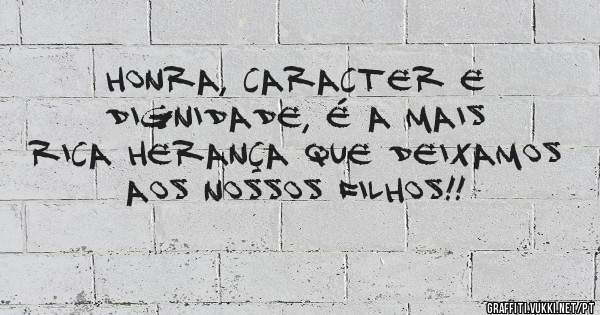 HONRA, CARACTER E
DIGNIDADE, É A MAIS
RICA HERANÇA QUE DEIXAMOS
AOS NOSSOS FILHOS!!
GRAFFITI.VUKKI.NET/PT